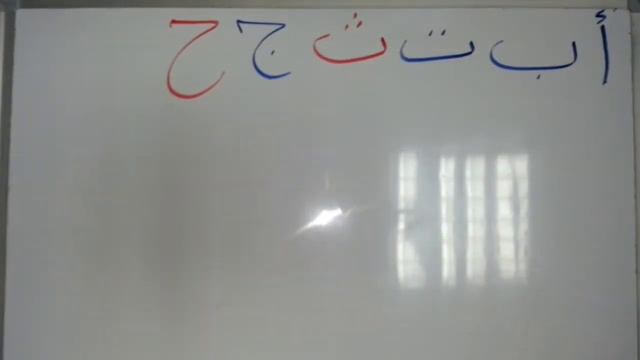 أ ب ت ث ج ح